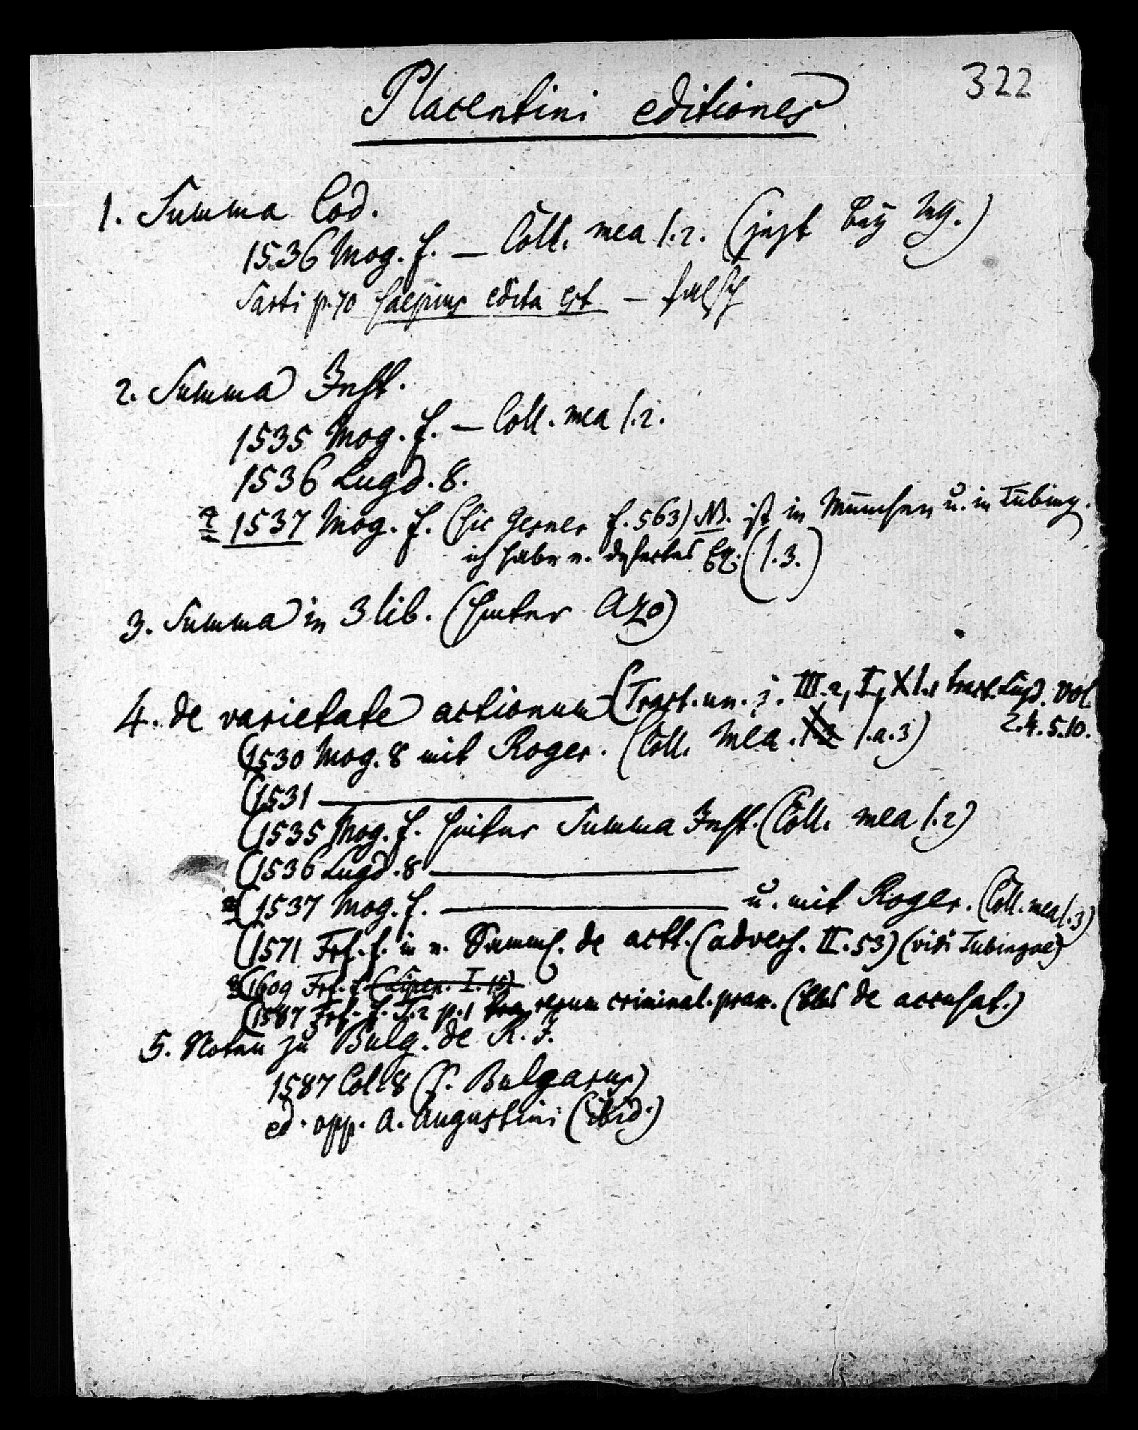 322
Placentini editiones
1. Summa Cod.
1536 Mog. f. — Coll. mea 1.2. (jezt bey)
Sarti p. 70 saepius edita est — falsch
2. Summa Inst.
1535 Mog. f. — Coll. mea 1.2.
1536 Lugd. 8.
? 1537 Mog. f. (sic Gesner f. 563) NB. ist in München u. in Tübing.
ich habe e. defectes Ex. (1.3.)
3. Summa in 3 lib. (hinter Azo)
4. de varietate actionum (Tract. un. j. III.2, I, XI.1 tract. Lugd. vol.
2.4.5.10.
(1530 Mog. 8 mit Roger. (Coll. mea 1.a.3)
(1531 ————
(1535 Mog. f. hinter Summa Inst. (Coll. mea 1.2)
(1536 Lugd. 8 ————
? (1537 Mog. f. ———— u. mit Roger. (Coll. mea 1.3)
(1571 Frf. f. in e. Samml. de actt. (advers. II. 53) (vidi Tubingae)
(1609 Frf. f. (Lipen. I. 15)
(1587 Frf. f. T. 2 p. 1 rerum criminal. prax. (de accusat.)
5. Noten zu Bulg. de R. J.
1587 Col. 8 (s. Bulgarus)
ed. opp. A. Augustini (ibid.)